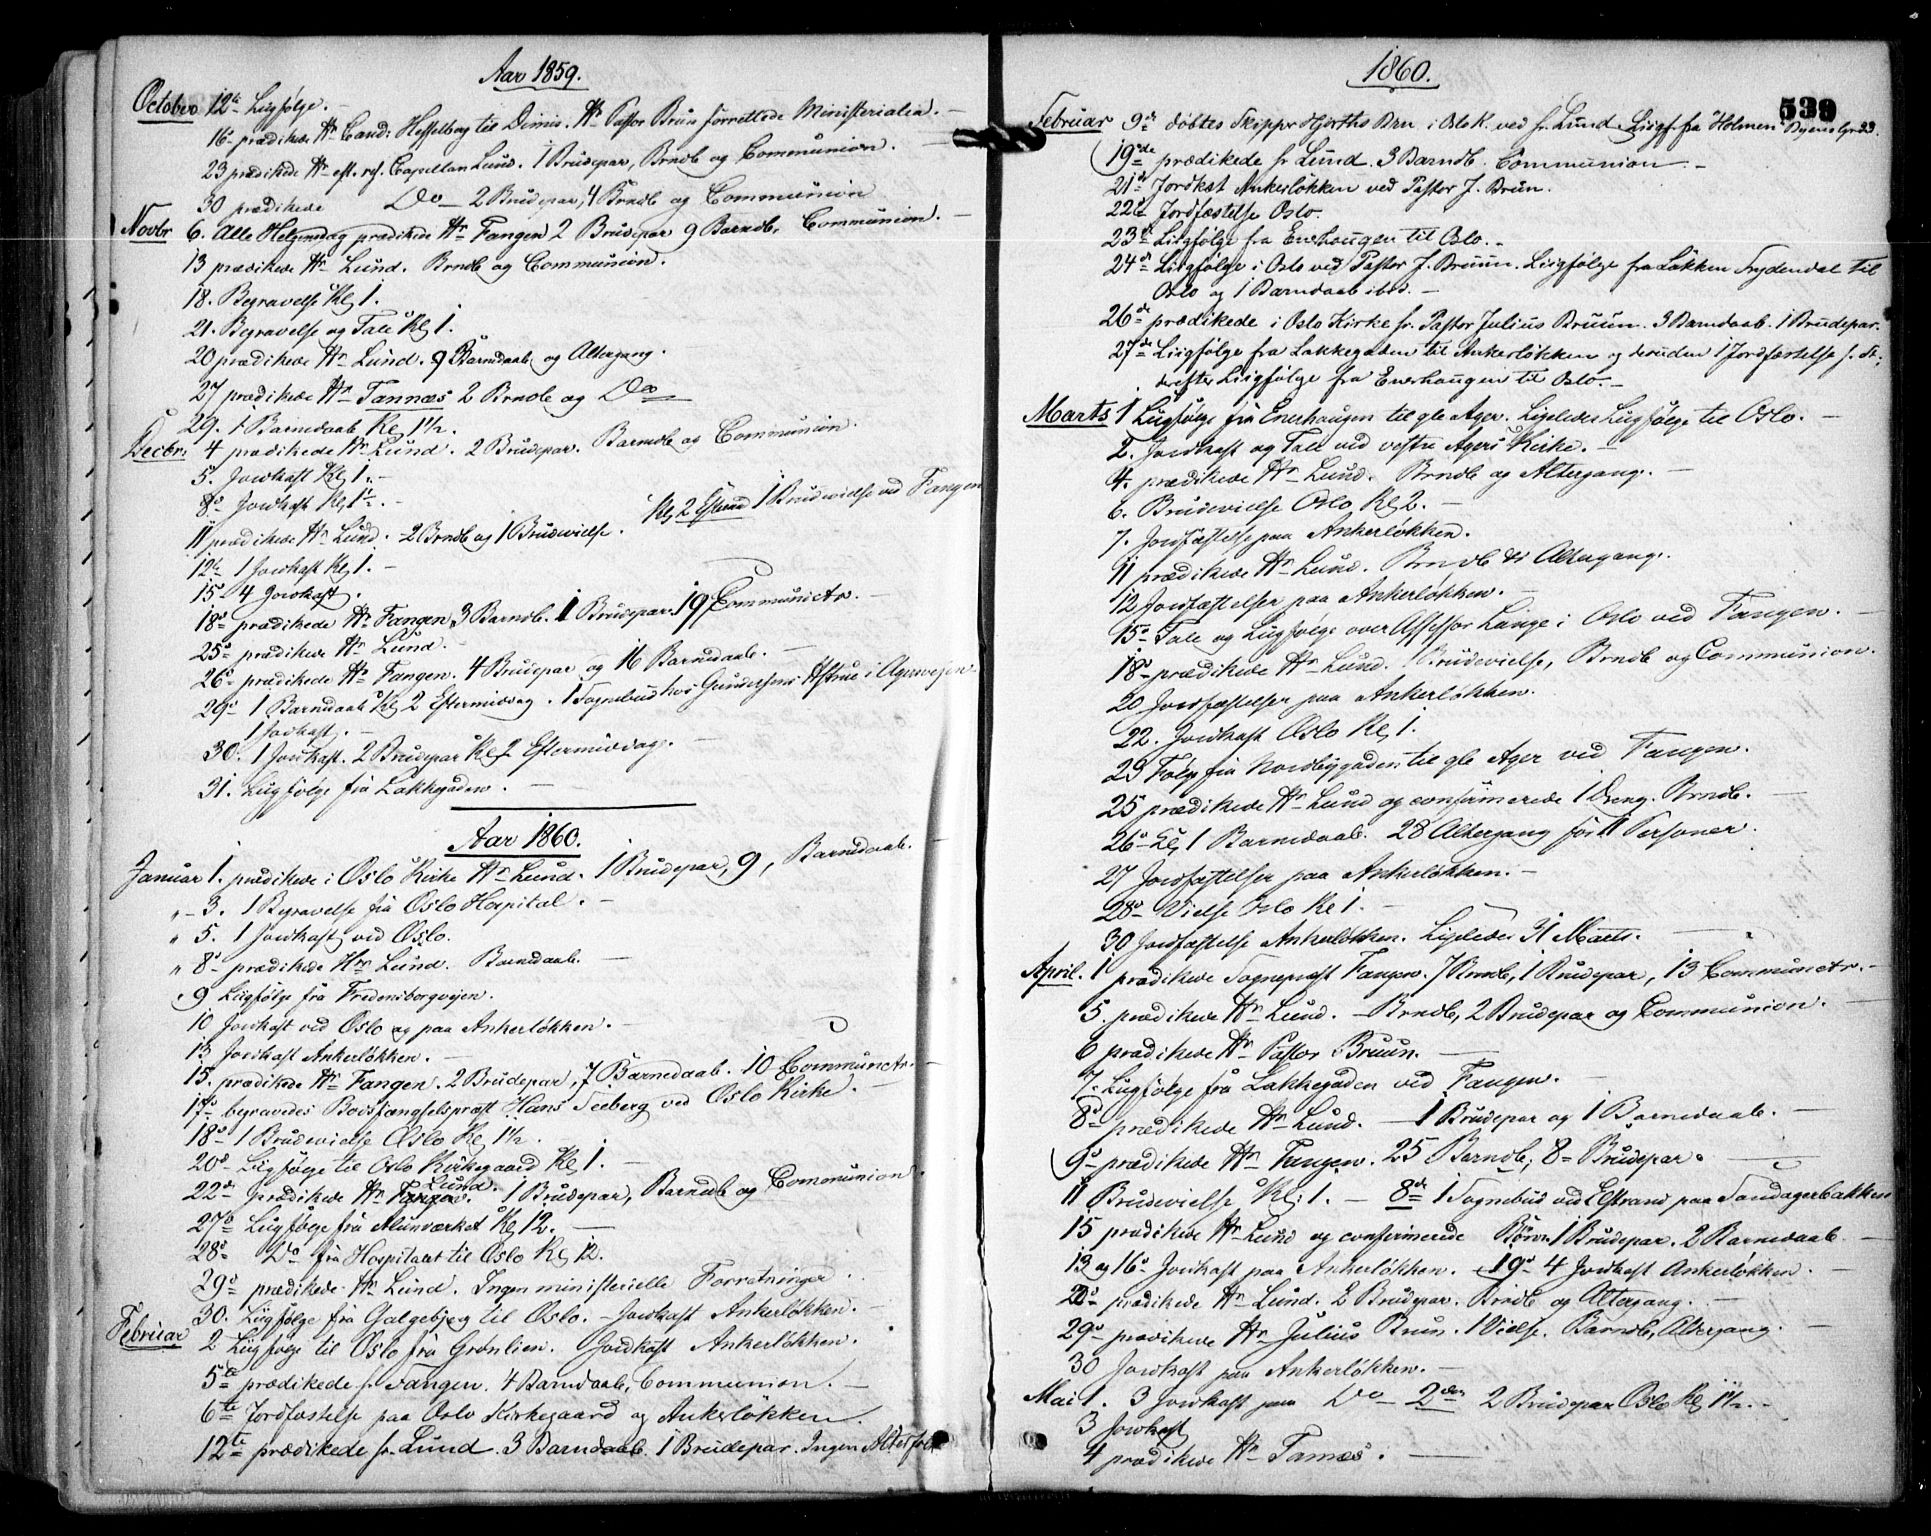 Aar 1859.
October 12te Liigfølge.
16de prædikede Hr Cand: Hesselbog til Dimis. Hr Pastor Brun forrettede Ministerialia.
23 prædikede Hr est. ref. Capellan Lund. 1 Brudepar, Brndb og Communion.
30 prædikede Do 2 Brudepar, 4 Brndb og Communion
Novbr 6. Alle Helgensdag prædikede Hr Fangen 2 Brudepar 9 Barndb, Communion.
13 prædikede Hr Lund. Brndb og Communion.
18. Begravelse Kl 1.
21. Begravelse og Tale Kl 1.
20 prædikede Hr Lund. 9 Barndaab og Altergang.
27 prædikede Hr Tannæs 2 Brndb og Do
29. 1 Barndaab Kl 1½.
Decbr: 4 prædikede Hr Lund. 2 Brudepar. Barndb og Communion.
5. Jordkast Kl 1.
8de Jordkast Kl 1½.
11 prædikede Hr Lund. 2 Brndb og 1 Brudevielse. Kl 2 Efterm 1 Brudevielse ved Fangen
12te 1 Jordkast Kl 1.
15 4 Jordkast.
18de prædikede Hr Fangen 3 Barndb. 1 Brudepar. 19 Communictr.
25de prædikede Hr Lund.
26de prædikede Hr Fangen. 4 Brudepar og 16 Barndaab.
29de 1 Barndaab Kl 2 Eftermiddag. 1 Sognebud hos Gundersens Hstrue i Agersveien
1 Jordkast.
30. 1 Jordkast. 2 Brudepar Kl 2 Eftermiddag.
31. Liigfølge fra Lakkegaden.
Aar 1860.
Januar 1. prædikede i Oslo Kirke Hr Lund. 1 Brudepar, 9, Barndaab.
" 3. 1 Begravelse fra Oslo Hospital.
" 5. 1 Jordkast ved Oslo.
" 8de prædikede Hr Lund. Barndaab.
9 Liigfølge fra Fredensborgveien.
10 Jordkast ved Oslo og paa Ankerløkken.
13 Jordkast Ankerløkken.
15. prædikede Hr Fangen. 2 Brudepar, 7 Barnedaab. 10 Communctr.
17de begravedes Bodsfængselspræst Hans Seeberg ved Oslo Kirke.
18de 1 Brudevielse Oslo Kl 1½.
20de Liigfølge til Oslo Kirkegaard Kl 1.
22de prædikede Hr Lund. 1 Brudepar, Barndb og Communion.
27de Liigfølge fra Alunværket Kl 12.
28de Do fra Hospitalet til Oslo Kl 12.
29de prædikede Hr Lund. Ingen ministerielle Forretninger.
30. Liigfølge fra Galgebjerg til Oslo. Jordkast Ankerløkken.
Februar 2 Liigfølge til Oslo fra Grønlien. Jordkast Ankerløkken.
5te prædikede hr Fangen. 4 Barndaab, Communion.
6te Jordfæstelse paa Oslo Kirkegaard og Ankerløkken.
12te prædikede hr Lund. 3 Barndaab. 1 Brudepar. Ingen Altesfolk
1860.
539
Februar 9de døbtes Skipper Hjorths Brn i Oslo K. ved hr Lund. Liigf. fra "Holmen" Byens Grd.
19de prædikede hr Lund. 3 Barndb. Communion
21de Jordkst Ankerløkken ved Pastor J. Brun.
22de Jordfæstelse Oslo.
23de Liigfølge fra Enerhaugen til Oslo.
24de Liigfølge i Oslo ved Pastor J. Bruun. Liigfølge fra Løkken Frydendal til
Oslo og 1 Barndaab ibd.
26de prædikede i Oslo Kirke hr. Pastor Julius Bruun. 3 Barndaab. 1 Brudepar.
27de Liigfølge fra Lakkegaden til Ankerløkken og desuden 1 Jordfæstelse s. St.
derefter Liigfølge fra Enerhaugen til Oslo.
Marts 1 Liigfølge fra Enerhaugen til gle Ager. Ligeledes Liigfølge til Oslo.
2. Jordkast og Tale ved vestre Agers Kirke.
4. prædikede Hr Lund. Brndb og Altergang.
6. Brudevielse Oslo Kl 2.
7. Jordfæstelse paa Ankerløkken.
11 prædikede Hr Lund. Brndb & Altergang.
12 Jordfæstelser paa Ankerløkken.
15de Tale og Liigfølge over Assessor Lange i Oslo ved Fangen.
18de prædikede Hr Lund. 1 Brudevielse, Brndb og Communion.
20 Jordfæstelser paa Ankerløkken.
22. Jordkast Oslo Kl 1.
23 Følge fra Nordbygaden til gle Ager ved Fangen.
25 prædikede Hr Lund og confirmerede 1 Dreng. Brndb.
26de Kl, 1 Barnedaab. 28 Altergang for 11 Personer.
27 Jordfæstelser paa Ankerløkken.
28de Vielse Oslo Kl 1.
30 Jordfæstelse Ankerløkken. Ligeledes 31 Marts.
April. 1 prædikede Sognepræst Fangen. 7 Brndb, 1 Brudepar, 13 Communctr.
5. prædikede Hr Lund. Brndb, 2 Brudepar og Communion.
6 prædikede Hr Pastor Bruun.
7. Liigfølge fra Lakkegaden ved Fangen.
8de prædikede Hr Lund. 1 Brudepar og 1 Barnedaab.
9de prædikede Hr Fangen. 25 Barndb, 8 Brudepar.
11 Brudevielse Kl: 1. 8de 1 Sognebud ved Elstrand paa Sandagerbakken
15 prædikede Hr Lund og confirmerede Børn 1 Brudepar. 2 Barnedaab
13 og 16de Jordkast paa Ankerløkken. 19de 4 Jordkast Ankerløkken.
22de prædikede Hr Lund. 2 Brudepar. Brndb og Altergang.
29de prædikede Hr Julius Brun. 1 Vielse. Barndb, Altergang.
30 Jordkast paa Ankerløkken.
Mai 1. 3 Jordkast paa Do 2den 2 Brudepar Oslo Kl 1½.
3 Jordkast
4 prædikede Hr Tannæs.